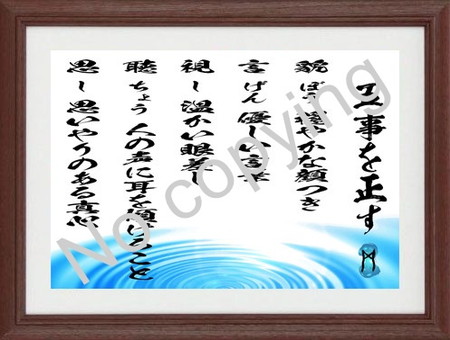 五事を正す
貌 ぼう 穏やかな顔つき
言 げん 優しい言葉
視 し 温かい眼差し
聴 ちょう 人の声に耳を傾けること
思 し 思いやりのある真心
No copying